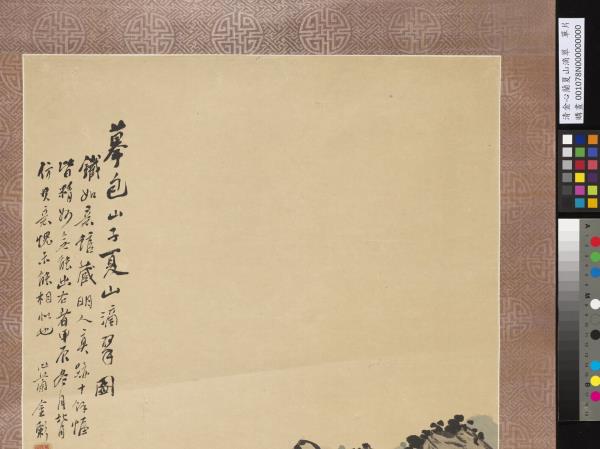 摹包山子夏山滴翠圖
鐵如意館藏明人真跡十餘幅
皆精妙無能出右者甲辰冬月北月
仿其意愧不能相似也 心蘭金彩
清金心蘭夏山滴翠 單片
購畫001078N000000000